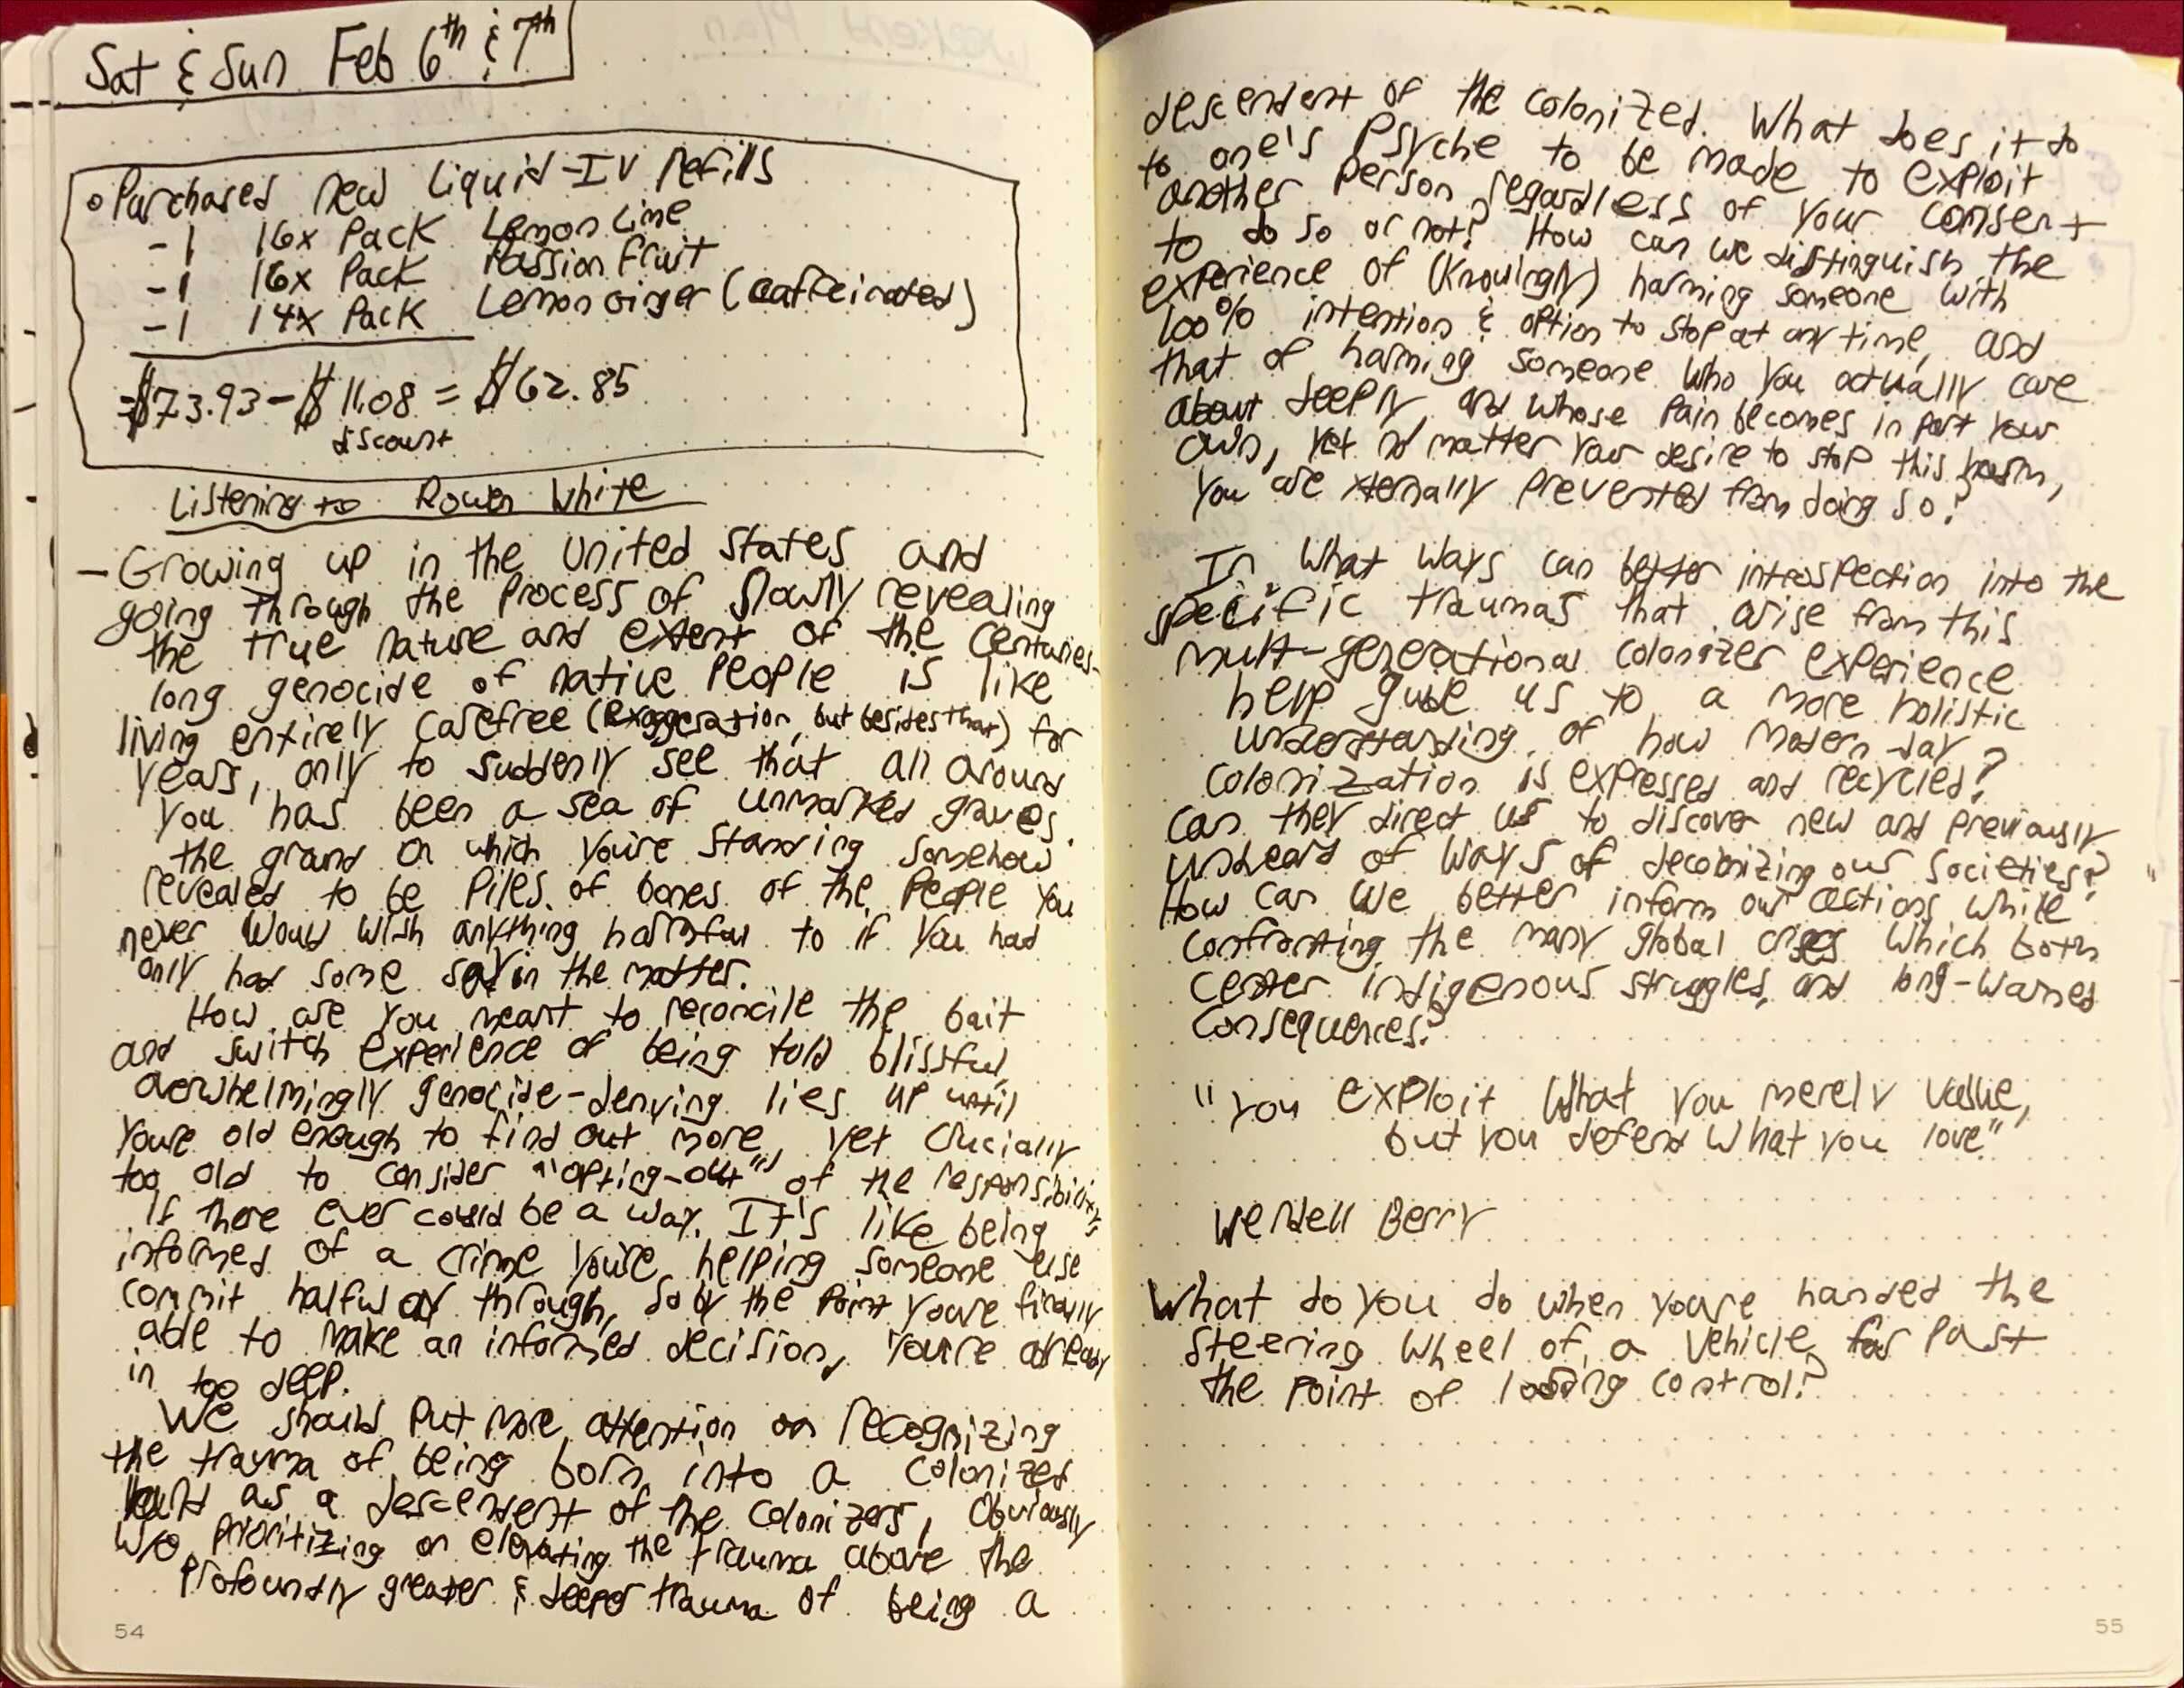 Sat & Sun Feb 6th & 7th
• Purchased new Liquid-IV Refills
-1 16x Pack Lemon Lime
-1 16x Pack Passion Fruit
-1 14x Pack Lemon Ginger (caffeinated)
$73.93 - $11.08 = $62.85
discount
Listening to Rowen White
- Growing up in the United States and
going through the process of slowly revealing
the true nature and extent of the centuries-
long genocide of native people is like
living entirely carefree (exaggeration, but besides that) for
years, only to suddenly see that all around
you has been a sea of unmarked graves.
the ground on which you're standing somehow
revealed to be piles of bones of the people you
never would wish anything harmful to if you had
only had some say in the matter.
How are you meant to reconcile the bait
and switch experience of being told blissful,
overwhelmingly genocide-denying lies up until
you're old enough to find out more, yet crucially
too old to consider "opting-out" of the responsibility,
if there ever could be a way. It's like being
informed of a crime you're helping someone else
commit halfway through, so by the point you're finally
able to make an informed decision, you're already
in too deep.
We should put more attention on recognizing
the trauma of being born into a colonized
land as a descendent of the colonizers, obviously
w/o prioritizing or elevating the trauma above the
profoundly greater & deeper trauma of being a
54
descendent of the colonized. What does it do
to one's psyche to be made to exploit
another person regardless of your consent
to do so or not? How can we distinguish the
experience of (knowingly) harming someone with
100% intention & option to stop at any time, and
that of harming someone who you actually care
about deeply, and whose pain becomes in part your
own, yet no matter your desire to stop this harm,
you are xternally prevented from doing so?
In what ways can better introspection into the
specific traumas that arise from this
mult-generational colonizer experience
help guide us to a more holistic
understanding of how modern day
colonization is expressed and recycled?
Can they direct us to discover new and previously
unheard of ways of decolonizing our societies?
How can we better inform our actions while
confronting the many global crises which both
center indigenous struggles, and long-warned
consequences?
"You exploit what you merely value,
but you defend what you love"
Wendell Berry
What do you do when you're handed the
steering wheel of a vehicle far past
the point of loosing control?
55